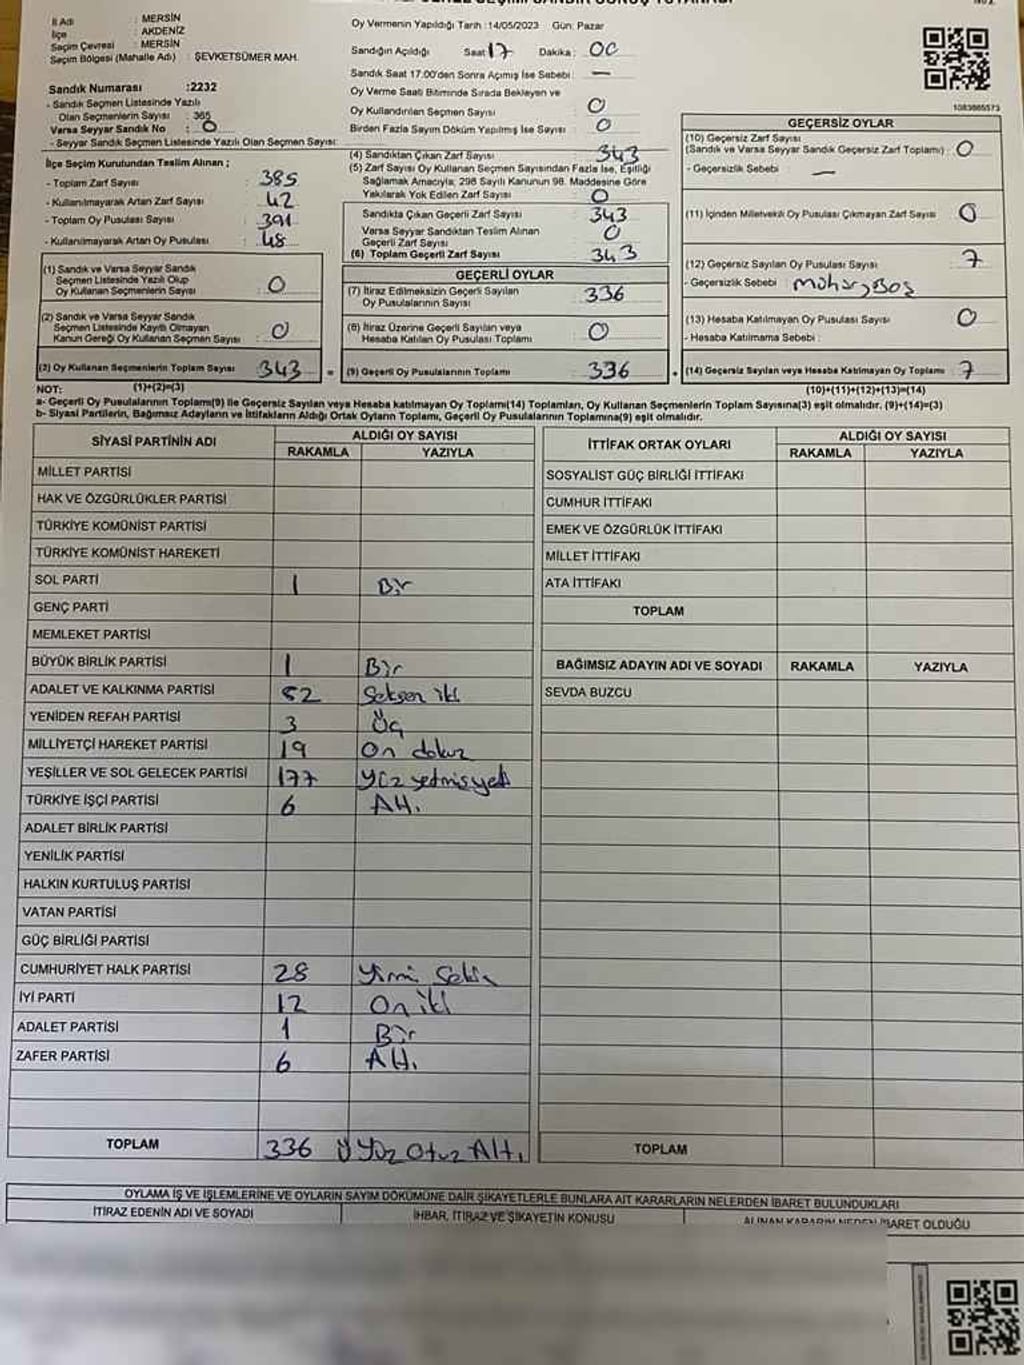 İl Adı : MERSİN
İlçe : AKDENİZ
Seçim Çevresi : MERSİN
Seçim Bölgesi (Mahalle Adı) : ŞEVKETSÜMER MAH.
Sandık Numarası :2232
- Sandık Seçmen Listesinde Yazılı
Olan Seçmenlerin Sayısı : 365
Varsa Seyyar Sandık No : 0
- Seyyar Sandık Seçmen Listesinde Yazılı Olan Seçmen Sayısı:
İlçe Seçim Kurulundan Teslim Alınan ;
- Toplam Zarf Sayısı : 385
- Kullanılmayarak Artan Zarf Sayısı : 42
- Toplam Oy Pusulası Sayısı : 391
- Kullanılmayarak Artan Oy Pusulası : 48
(1) Sandık ve Varsa Seyyar Sandık
Seçmen Listesinde Yazılı Olup
Oy Kullanan Seçmenlerin Sayısı : 0
(2) Sandık ve Varsa Seyyar Sandık
Seçmen Listesinde Kayıtlı Olmayan
Kanun Gereği Oy Kullanan Seçmen Sayısı : 0
(3) Oy Kullanan Seçmenlerin Toplam Sayısı : 343
Oy Vermenin Yapıldığı Tarih :14/05/2023 Gün: Pazar
Sandığın Açıldığı Saat 17 Dakika : 00
Sandık Saat 17.00'den Sonra Açımış İse Sebebi : —
Oy Verme Saati Bitiminde Sırada Bekleyen ve
Oy Kullandırılan Seçmen Sayısı : 0
Birden Fazla Sayım Döküm Yapılmış İse Sayısı : 0
(4) Sandıktan Çıkan Zarf Sayısı : 343
(5) Zarf Sayısı Oy Kullanan Seçmen Sayısından Fazla İse, Eşitliği
Sağlamak Amacıyla, 298 Sayılı Kanunun 98. Maddesine Göre
Yakılarak Yok Edilen Zarf Sayısı : 0
Sandıkta Çıkan Geçerli Zarf Sayısı : 343
Varsa Seyyar Sandıktan Teslim Alınan
Geçerli Zarf Sayısı : 0
(6) Toplam Geçerli Zarf Sayısı : 343
GEÇERLİ OYLAR
(7) İtiraz Edilmeksizin Geçerli Sayılan
Oy Pusulalarının Sayısı : 336
(8) İtiraz Üzerine Geçerli Sayılan veya
Hesaba Katılan Oy Pusulası Toplamı : 0
= (9) Geçerli Oy Pusulalarının Toplamı : 336
1083665573
GEÇERSİZ OYLAR
(10) Geçersiz Zarf Sayısı
(Sandık ve Varsa Seyyar Sandık Geçersiz Zarf Toplamı) : 0
- Geçersizlik Sebebi : —
(11) İçinden Milletvekili Oy Pusulası Çıkmayan Zarf Sayısı : 0
(12) Geçersiz Sayılan Oy Pusulası Sayısı : 7
- Geçersizlik Sebebi :
(13) Hesaba Katılmayan Oy Pusulası Sayısı : 0
- Hesaba Katılmama Sebebi :
+ (14) Geçersiz Sayılan veya Hesaba Katılmayan Oy Toplamı : 7
NOT: (1)+(2)=(3) (10)+(11)+(12)+(13)=(14)
a- Geçerli Oy Pusulalarının Toplamı(9) ile Geçersiz Sayılan veya Hesaba katılmayan Oy Toplamı(14) Toplamları, Oy Kullanan Seçmenlerin Toplam Sayısına(3) eşit olmalıdır. (9)+(14)=(3)
b- Siyasi Partilerin, Bağımsız Adayların ve İttifakların Aldığı Ortak Oyların Toplamı, Geçerli Oy Pusulalarının Toplamına(9) eşit olmalıdır.
SİYASİ PARTİNİN ADI ALDIĞI OY SAYISI
RAKAMLA YAZIYLA
MİLLET PARTİSİ
HAK VE ÖZGÜRLÜKLER PARTİSİ
TÜRKİYE KOMÜNİST PARTİSİ
TÜRKİYE KOMÜNİST HAREKETİ
SOL PARTİ 1 Bir
GENÇ PARTİ
MEMLEKET PARTİSİ
BÜYÜK BİRLİK PARTİSİ 1 Bir
ADALET VE KALKINMA PARTİSİ 82 Seksen iki
YENİDEN REFAH PARTİSİ 3 Üç
MİLLİYETÇİ HAREKET PARTİSİ 19 On dokuz
YEŞİLLER VE SOL GELECEK PARTİSİ 177 Yüz yetmişyedi
TÜRKİYE İŞÇİ PARTİSİ 6 Altı
ADALET BİRLİK PARTİSİ
YENİLİK PARTİSİ
HALKIN KURTULUŞ PARTİSİ
VATAN PARTİSİ
GÜÇ BİRLİĞİ PARTİSİ
CUMHURİYET HALK PARTİSİ 28 Yirmi Sekiz
İYİ PARTİ 12 On iki
ADALET PARTİSİ 1 Bir
ZAFER PARTİSİ 6 Altı
TOPLAM 336 Üç Yüz Otuz Altı
İTTİFAK ORTAK OYLARI ALDIĞI OY SAYISI
RAKAMLA YAZIYLA
SOSYALİST GÜÇ BİRLİĞİ İTTİFAKI
CUMHUR İTTİFAKI
EMEK VE ÖZGÜRLÜK İTTİFAKI
MİLLET İTTİFAKI
ATA İTTİFAKI
TOPLAM
BAĞIMSIZ ADAYIN ADI VE SOYADI RAKAMLA YAZIYLA
SEVDA BUZCU
TOPLAM
OYLAMA İŞ VE İŞLEMLERİNE VE OYLARIN SAYIM DÖKÜMÜNE DAİR ŞİKAYETLERLE BUNLARA AİT KARARLARIN NELERDEN İBARET BULUNDUKLARI
İTİRAZ EDENİN ADI VE SOYADI İHBAR, İTİRAZ VE ŞİKAYETİN KONUSU ALINAN KARARIN NEDEN İBARET OLDUĞU